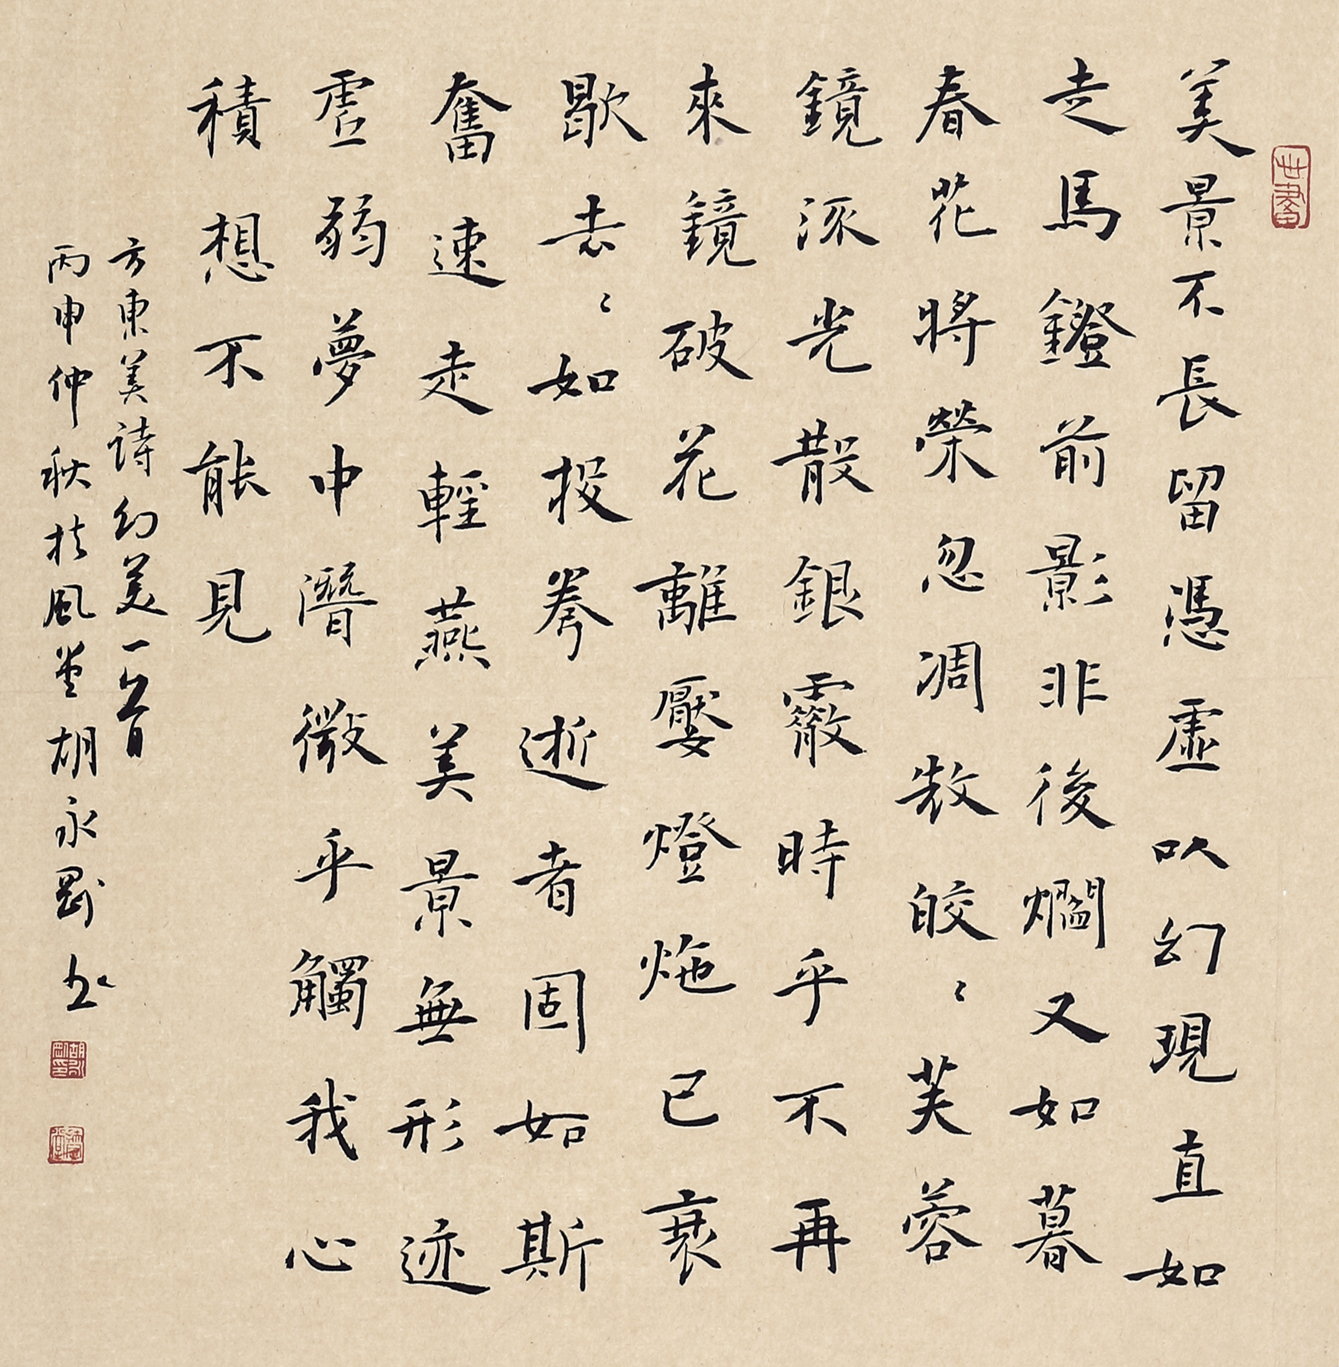 美景不長留憑虛以幻現直如
走馬鐙前影非後爓又如暮
春花將榮忽凋皎〻芙蓉
鏡光散銀霰時乎不再
來鏡破花離嬮燈炧已衰
歇去〻如投拳逝者固如斯
奮速走輕燕美景無形迹
虛弱夢中潛微乎觸我心
積想不能見
方東美詩幻美一首
丙申仲秋風堂胡永剛书